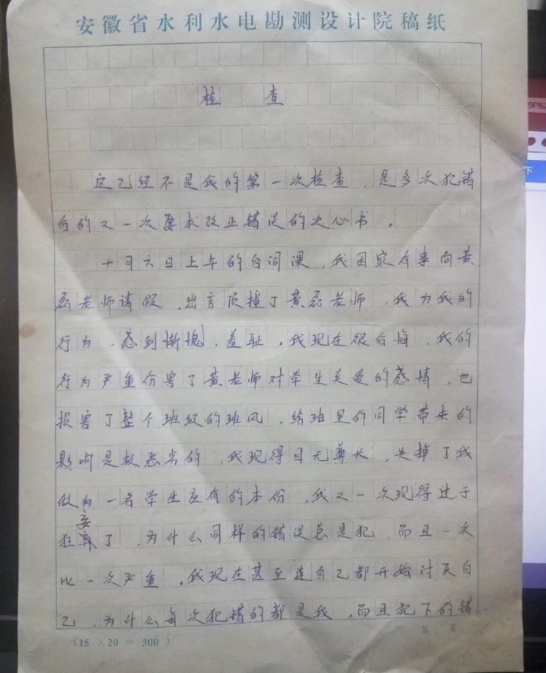 安徽省水利水电勘测设计院稿纸
检 查
这已经不是我的第一次检查，是多次犯错
后的又一次要求改正错误的决心书。
十月六日上午的台词课，我因家有事向黄
磊老师请假，出言顶撞了黄磊老师，我为我的
行为，感到惭愧，羞耻，我现在很后悔，我的
行为严重伤害了黄老师对学生关爱的感情，也
损害了整个班级的班风，给班里的同学带来的
影响是极恶劣的，我现得目无尊长，失掉了我
做为一名学生应有的本份，我又一次现得过于
狂妄了，为什么同样的错误总是犯，而且一次
比一次严重，我现在甚至连自己都开始讨厌自
己，为什么每次犯错的都是我，而且犯下的错
（15 × 20 = 300）